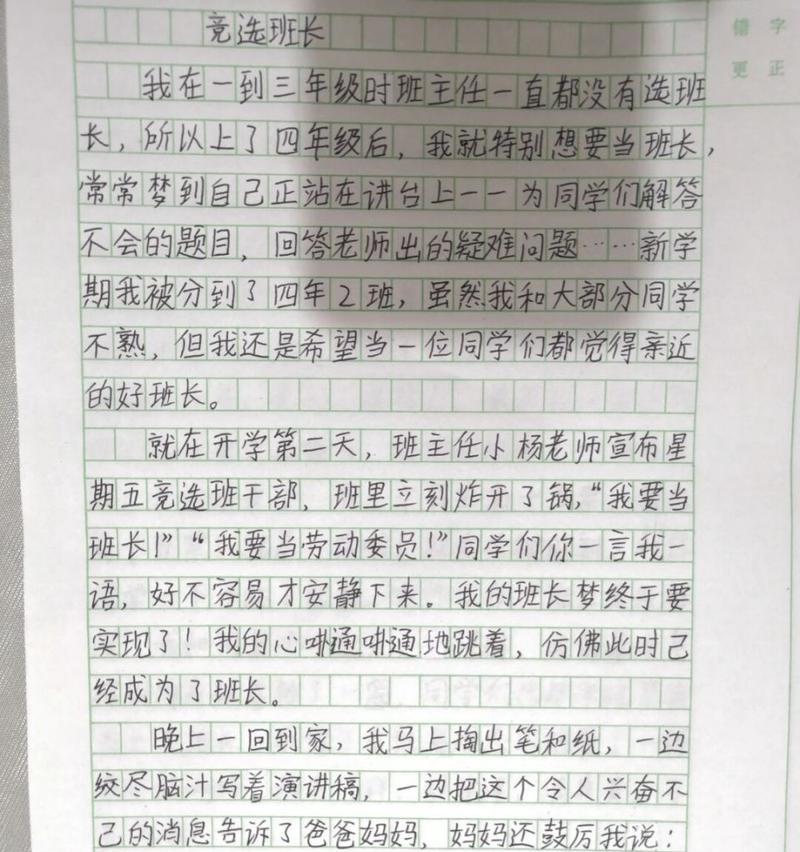 竞选班长
错字
更正
我在一到三年级时班主任一直都没有选班
长，所以上了四年级后，我就特别想要当班长，
常常梦到自己正站在讲台上——为同学们解答
不会的题目，回答老师出的疑难问题……新学
期我被分到了四年2班，虽然我和大部分同学
不熟，但我还是希望当一位同学们都觉得亲近
的好班长。
就在开学第二天，班主任小杨老师宣布星
期五竞选班干部，班里立刻炸开了锅，“我要当
班长！”“我要当劳动委员！”同学们你一言我一
语，好不容易才安静下来。我的班长梦终于要
实现了！我的心咘通咘通地跳着，仿佛此时己
经成为了班长。
晚上一回到家，我马上掏出笔和纸，一边
绞尽脑汁写着演讲稿，一边把这个令人兴奋不
己的消息告诉了爸爸妈妈，妈妈还鼓厉我说：